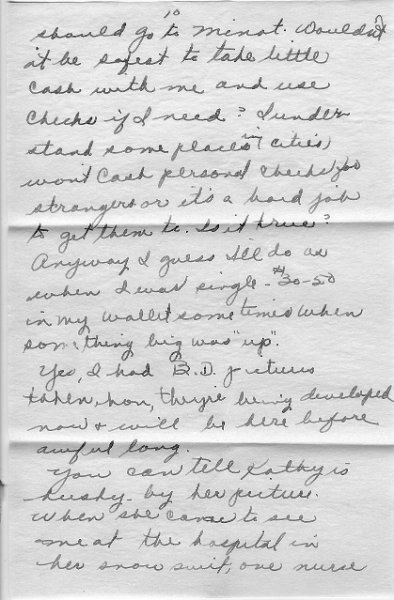 10
should go to Minot. Wouldn't
it be safest to take little
cash with me and use
checks if I need? I under-
stand some places in cities
won't cash personal checks for
strangers or it's a hard job
to get them to. Is it true?
Anyway I guess I'll do as
when I was single - $30-50
in my wallet sometimes when
something big was "up".
Yes, I had B.D. pictures
taken, hon, they're being developed
now & will be here before
awful long.
You can tell Kathy is
husky - by her picture.
When she came to see
me at the hospital in
her snow suit, one nurse